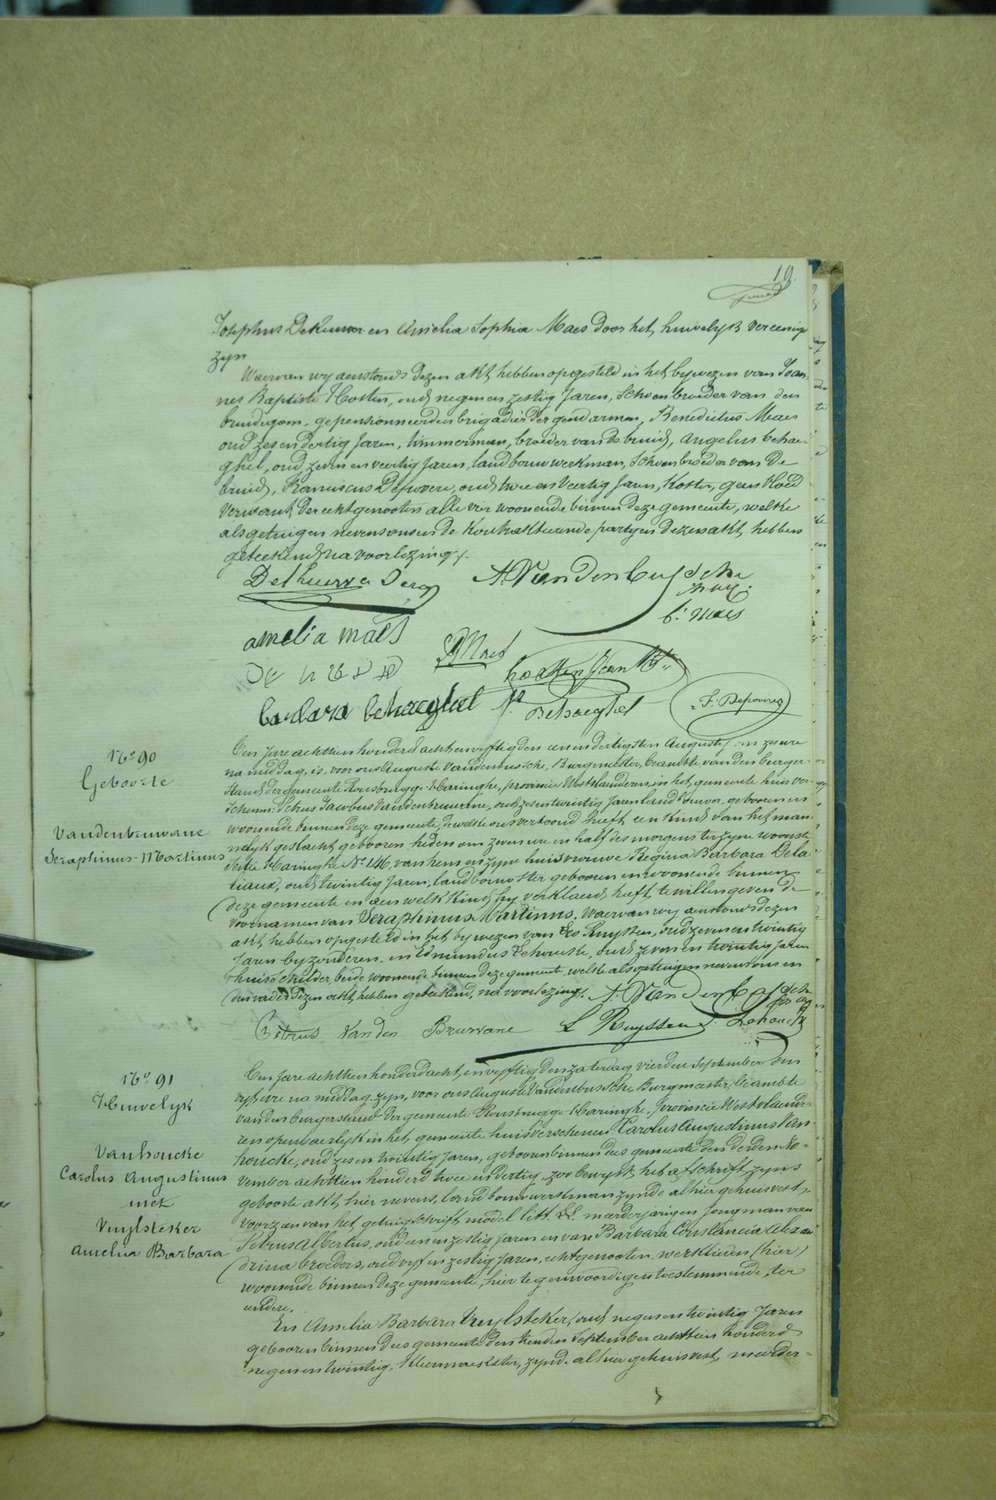 19.
Josephus en Amelia Sophia Maes door het huwelyk vereenigd
zyn
Waervan wy aenstonds dezen akt hebben opgesteld in het bywezen van Joan-
nes Baptiste Hosten, oud negen en zestig Jaren, Schoonbroeder van den
bruidegom, gepensionneerden brigadier der gendarmen, Benedictus Maes
oud zes en dertig Jaren, timmerman, broeder van de bruid, Angelus Behae-
ghel, oud zeven en veertig Jaren, landbouwwerkman, Schoonbroeder van de
bruid, Franciscus Depovere, oud twee en veertig Jaren, Koster, geen bloed
verwant der echtgenooten alle vier woonende binnen deze gemeente, welke
als getuigen nevens ons en de kontrakteerende partyen dezen akt hebben
geteekend na voorlezing.
A. Vandenbussche
b. Maes
amelia maes
S Maes
hosten Jean Bte
barbara behaeghel
Behaeghel
F. Depovere
No 90
Geboorte
Vandenbruwane
Seraphinus-Martinus
Den Jare achttien honderd acht en vyftig den een en dertigsten Augusty, om zes ure
na middag, is, voor ons Auguste Vandenbussche, Burgmeester, beambte van den burger-
stand der gemeente Rousbrugge-Haringhe, provincie Westvlanderen, in het gemeente huis ver-
schenen Petrus Jacobus Vandenbruwane, oud zes en twintig Jaren landbouwer, geboren en
woonende binnen deze gemeente, dewelke ons vertoond heeft een kind van het man-
nelyk geslacht, geboren heden om zeven ure en half des morgens ter zyner woonst
sectie Haringhe No 146, van hem en zyne huisvrouwe Regina Barbara Dela-
tiaux, oud twintig Jaren, landbouwster geboren en woonende binnen
deze gemeente en aen welk kind hy verklaerd heeft te willen geven de
voornamen van Seraphinus Martinus. Waervan wy aenstonds dezen
akt hebben opgesteld in het bywezen van Leo Ruyssen, oud zeven en twintig
Jaren byzonderen, en Edmundus Schoucke, oud zeven en twintig Jaren
huisschilder, beide woonende binnen deze gemeente, welke als getuigen nevens ons en
den vader dezen akt hebben geteekend, na voorlezing. A. Vandenbussche
Petrus Van den Bruwane L Ruyssen
No 91
Huwelyk
Vanhoucke
Carolus Augustinus
met
Vuylsteker
Amelia Barbara
Den Jare achttien honderd acht en vyftig den zaterdag vierden September om
vyf ure na middag, zyn, voor ons Auguste Vandenbussche, Burgmeester, beambte
van den burgerstand der gemeente Rousbrugge-Haringhe, provincie Westvlaende-
ren openbaerlyk in het gemeente huis verschenen Carolus Augustinus Van-
houcke, oud zes en twintig Jaren, geboren binnen dees gemeente den derden No-
vember achttien honderd twee en dertig, zoo bewyst het afschrift zyns
geboorte akt, hier nevens, landbouwwerkman zynde alhier gehuisvest,
voorzien van het getuigschrift model litt. meerderjarigen Jongman van
Petrus Albertus, oud een en zestig Jaren en van Barbara Constancia Alexan-
drina broeders, oud vyf en zestig Jaren, echtgenooten, werklieden (hier)
woonende binnen deze gemeente, hier tegenwoordig en toestemmende, ter
eendere.
En Amelia Barbara Vuylsteker, oud negen en twintig Jaren
geboren binnen dees gemeente den September achttien honderd
negen en twintig, zynde alhier gehuisvest, meerder-